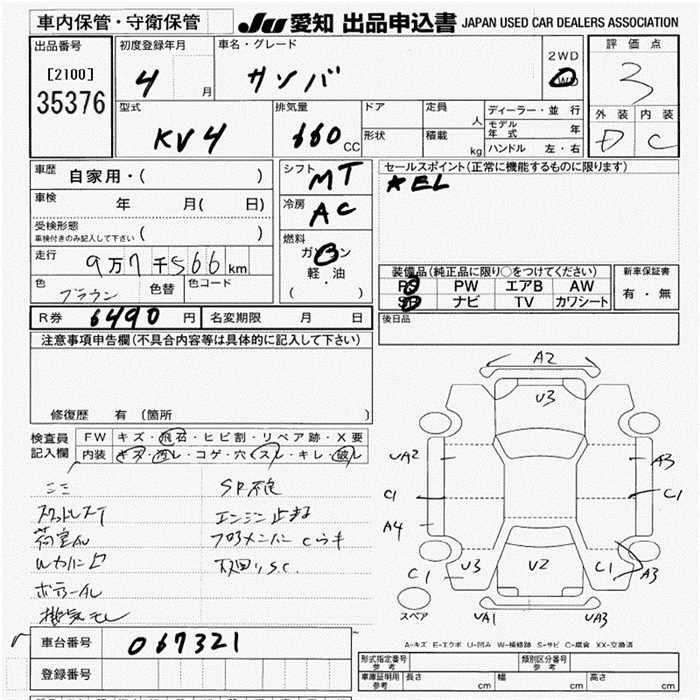 車内保管・守衛保管
JU 愛知 出品申込書 JAPAN USED CAR DEALERS ASSOCIATION
出品番号
[2100]
35376
初度登録年月
4
月
車名・グレード
サンバー
2WD
4WD
評価点
3
外装 内装
D C
型式
KV4
排気量
660 CC
ドア
形状
定員
人
積載
kg
ディーラー・並行
モデル年式 年
ハンドル 左・右
車歴 自家用・( )
車検 年 月( 日)
受検形態
車検付きのみ記入して下さい ( )
走行 9万7千566km
色 ブラウン 色替 色コード
シフト MT
冷房 AC
燃料
ガソリン
軽・油
( )
セールスポイント(正常に機能するものに限ります)
★EL
装備品(純正品に限り○をつけてください)
PS PW エアB AW
SR ナビ TV カワシート
新車保証書
有・無
R券 6490 円 名変期限 月 日
後日品
注意事項申告欄(不具合内容等は具体的に記入して下さい)
修復歴 有(箇所 )
検査員記入欄
FW キズ・飛石・ヒビ割・リペア跡・X要
内装 キズ・汚レ・コゲ・穴・スレ・キレ・破レ
SR不良
エンジン止まる
荷室AU
排気モレ
A2
U3
UA2
A3
C1
C1
A4
U3
U2
C1
C1
A3
UA1
UA3
スペア
A-キズ E-エクボ U-凹み W-補修跡 S-サビ C-腐食 XX-交換済
車台番号 067321
登録番号
形式指定番号 参考
類別区分番号 参考
車庫証明用 参考 長さ cm 幅 cm 高さ cm